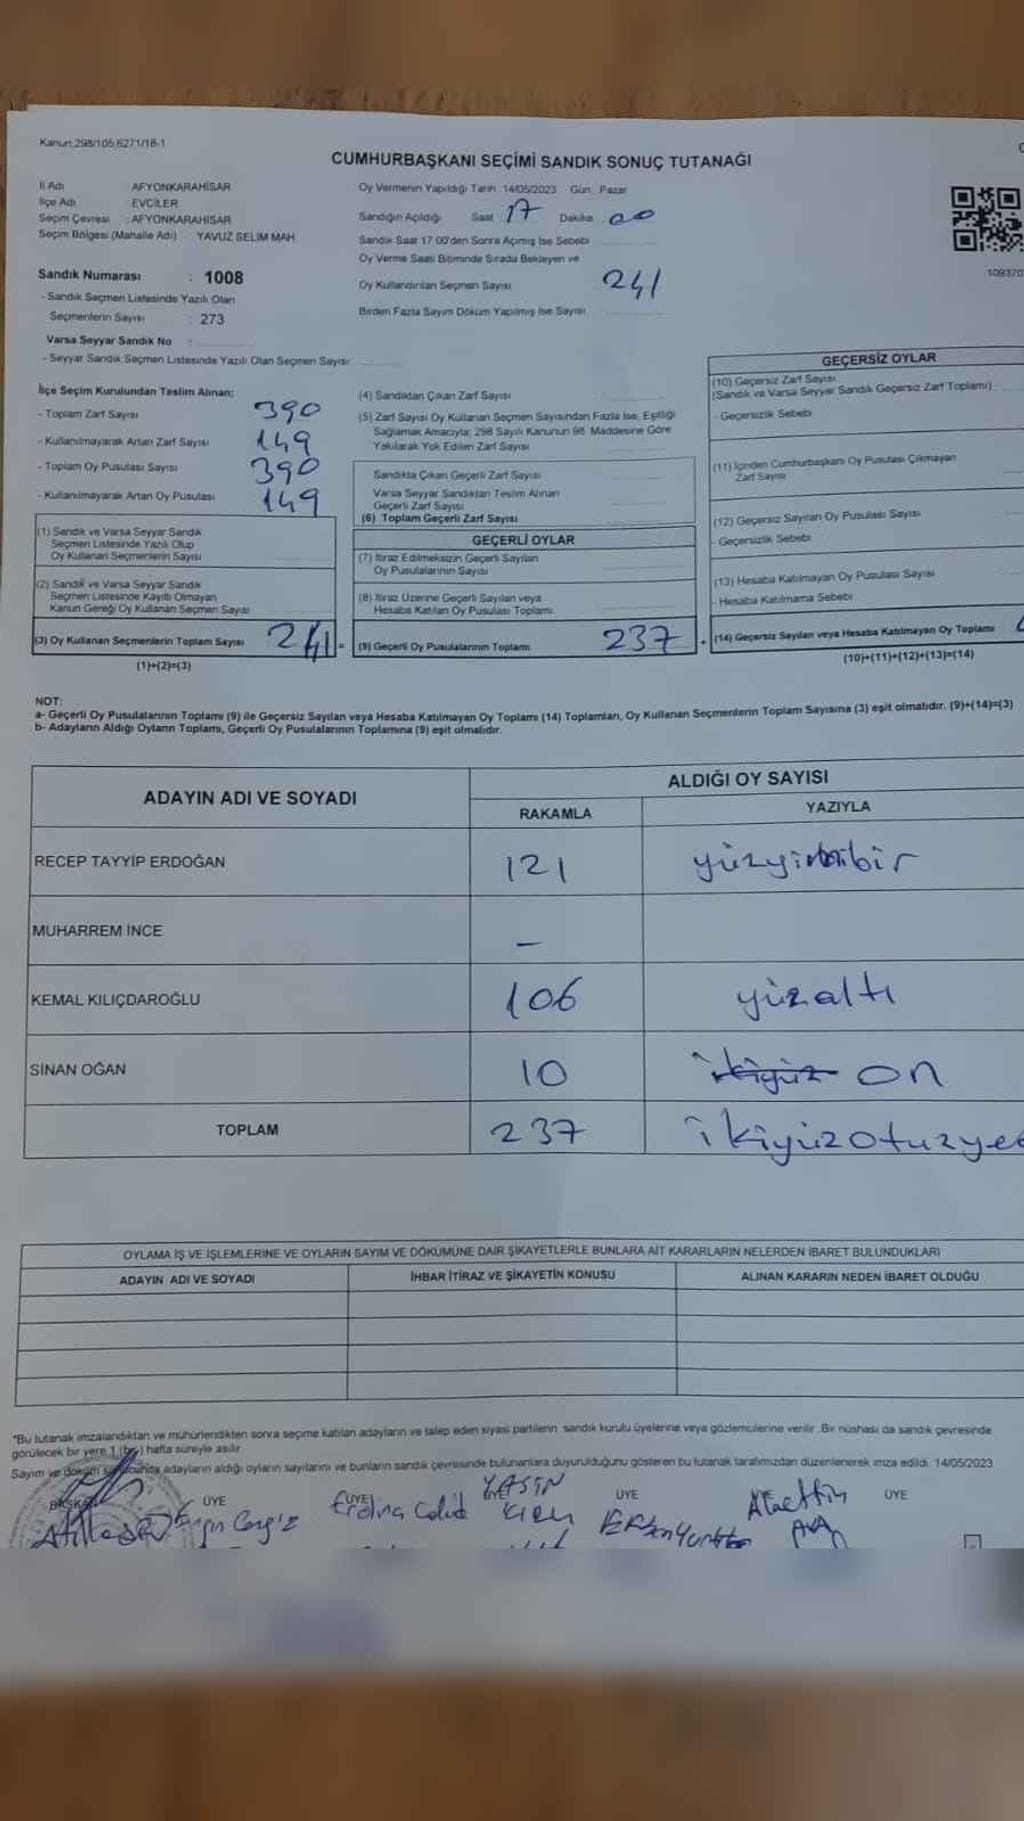 Kanun:298/105;6271/18-1
CUMHURBAŞKANI SEÇİMİ SANDIK SONUÇ TUTANAĞI
İl Adı : AFYONKARAHİSAR
İlçe Adı : EVCİLER
Seçim Çevresi : AFYONKARAHİSAR
Seçim Bölgesi (Mahalle Adı) YAVUZ SELİM MAH
Oy Vermenin Yapıldığı Tarih 14/05/2023 Gün Pazar
Sandığın Açıldığı Saat 17 Dakika 00
Sandık Saat 17:00'den Sonra Açılmış İse Sebebi
Oy Verme Saati Bitiminde Sırada Bekleyen ve
Oy Kullandırılan Seçmen Sayısı 241
Birden Fazla Sayım Döküm Yapılmış İse Sayısı
109370
Sandık Numarası : 1008
- Sandık Seçmen Listesinde Yazılı Olan
Seçmenlerin Sayısı : 273
Varsa Seyyar Sandık No :
- Seyyar Sandık Seçmen Listesinde Yazılı Olan Seçmen Sayısı
İlçe Seçim Kurulundan Teslim Alınan;
- Toplam Zarf Sayısı 390
- Kullanılmayarak Artan Zarf Sayısı 149
- Toplam Oy Pusulası Sayısı 390
- Kullanılmayarak Artan Oy Pusulası 149
(1) Sandık ve Varsa Seyyar Sandık
Seçmen Listesinde Yazılı Olup
Oy Kullanan Seçmenlerin Sayısı
(2) Sandık ve Varsa Seyyar Sandık
Seçmen Listesinde Kayıtlı Olmayan
Kanun Gereği Oy Kullanan Seçmen Sayısı
(3) Oy Kullanan Seçmenlerin Toplam Sayısı 241 =
(1)+(2)=(3)
(4) Sandıktan Çıkan Zarf Sayısı
(5) Zarf Sayısı Oy Kullanan Seçmen Sayısından Fazla İse, Eşitliği
Sağlamak Amacıyla; 298 Sayılı Kanunun 98. Maddesine Göre
Yakılarak Yok Edilen Zarf Sayısı
Sandıkta Çıkan Geçerli Zarf Sayısı
Varsa Seyyar Sandıktan Teslim Alınan
Geçerli Zarf Sayısı
(6) Toplam Geçerli Zarf Sayısı
GEÇERLİ OYLAR
(7) İtiraz Edilmeksizin Geçerli Sayılan
Oy Pusulalarının Sayısı
(8) İtiraz Üzerine Geçerli Sayılan veya
Hesaba Katılan Oy Pusulası Toplamı
(9) Geçerli Oy Pusulalarının Toplamı 237 +
GEÇERSİZ OYLAR
(10) Geçersiz Zarf Sayısı
(Sandık ve Varsa Seyyar Sandık Geçersiz Zarf Toplamı)
- Geçersizlik Sebebi
(11) İçinden Cumhurbaşkanı Oy Pusulası Çıkmayan
Zarf Sayısı
(12) Geçersiz Sayılan Oy Pusulası Sayısı
- Geçersizlik Sebebi
(13) Hesaba Katılmayan Oy Pusulası Sayısı
- Hesaba Katılmama Sebebi
(14) Geçersiz Sayılan veya Hesaba Katılmayan Oy Toplamı
(10)+(11)+(12)+(13)=(14)
NOT:
a- Geçerli Oy Pusulalarının Toplamı (9) ile Geçersiz Sayılan veya Hesaba Katılmayan Oy Toplamı (14) Toplamları, Oy Kullanan Seçmenlerin Toplam Sayısına (3) eşit olmalıdır. (9)+(14)=(3)
b- Adayların Aldığı Oyların Toplamı, Geçerli Oy Pusulalarının Toplamına (9) eşit olmalıdır.
ADAYIN ADI VE SOYADI
ALDIĞI OY SAYISI
RAKAMLA YAZIYLA
RECEP TAYYİP ERDOĞAN 121 yüzyirmibir
MUHARREM İNCE -
KEMAL KILIÇDAROĞLU 106 yüzaltı
SİNAN OĞAN 10 ikiyüz on
TOPLAM 237 ikiyüzotuzye
OYLAMA İŞ VE İŞLEMLERİNE VE OYLARIN SAYIM VE DÖKÜMÜNE DAİR ŞİKAYETLERLE BUNLARA AİT KARARLARIN NELERDEN İBARET BULUNDUKLARI
ADAYIN ADI VE SOYADI İHBAR İTİRAZ VE ŞİKAYETİN KONUSU ALINAN KARARIN NEDEN İBARET OLDUĞU
"Bu tutanak imzalandıktan ve mühürlendikten sonra seçime katılan adayların ve talep eden siyasi partilerin sandık kurulu üyelerine veya gözlemcilerine verilir. Bir nüshası da sandık çevresinde
görülecek bir yere 1 (bir) hafta süreyle asılır.
Sayım ve döküm sonucunda adayların aldığı oyların sayılarını ve bunların sandık çevresinde bulunanlara duyurulduğunu gösteren bu tutanak tarafımızdan düzenlenerek imza edildi. 14/05/2023
BAŞKAN ÜYE ÜYE ÜYE ÜYE ÜYE
Engin Cengiz YASİN Alaettin